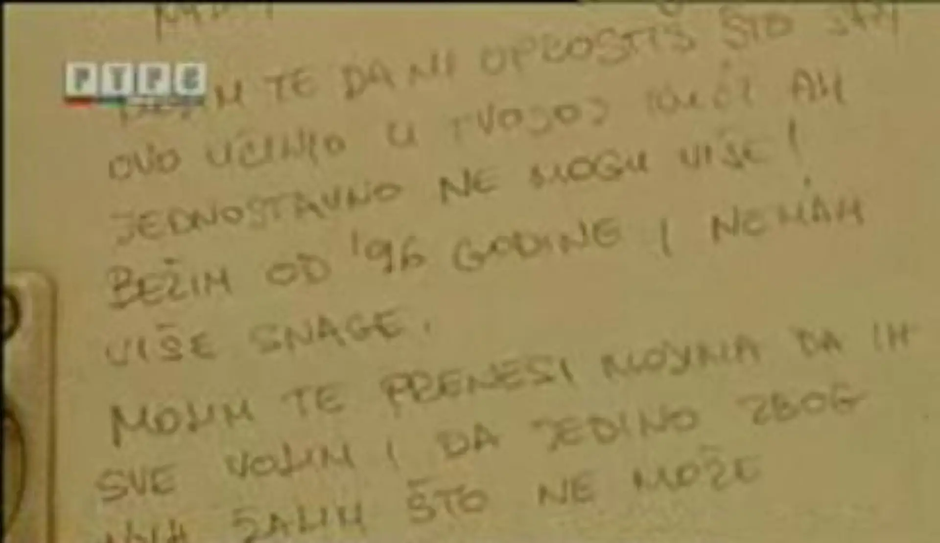 РТРС
MOLIM TE DA MI OPROSTIŠ ŠTO SAM
OVO UČINIO U TVOJOJ KUĆI AH
JEDNOSTAVNO NE MOGU VIŠE!
BEŽIM OD '96 GODINE I NEMAM
VIŠE SNAGE.
MOLIM TE PRENESI MOJIMA DA IH
SVE VOLIM I DA JEDINO ZBOG
NJIH ŽALIM ŠTO NE MOŽE